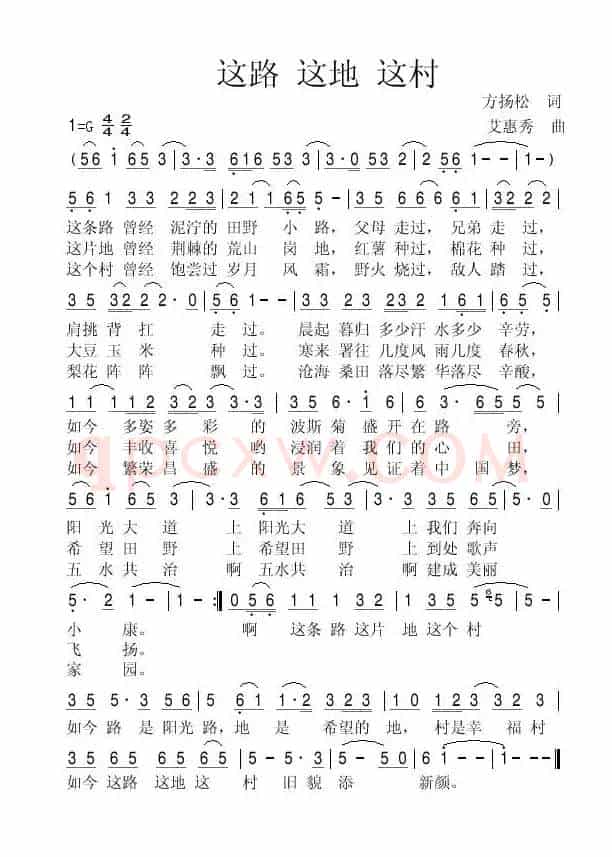 这路 这地 这村
方扬松 词
1=G 4/4 2/4
艾惠秀 曲
(5 6 1 6 5 3 | 3 · 3 6 1 6 5 3 | 0 5 3 3 | 3 · 0 2 3 2 | 2 5 6 1 - - | 1 - - - )
5 6 1 3 3 2 2 3 | 2 1 1 6 5 5 - | 3 5 6 6 0 6 6 | 5 5 2 3 - |
这条路 曾经 泥泞的 田野 小 路，父母 走过，兄弟 走 过，
这片地 曾经 荆棘的 荒山 岗 地，红薯 种过，棉花 种 过，
这个村 曾经 饱尝过 岁月 风 霜，野火 烧过，敌人 踏 过，
3 5 3 2 2 2 2 · 0 | 5 6 1 - - | 3 3 2 3 2 3 2 | 1 6 1 6 5 5 · |
肩挑 背 扛 走 过。 晨起 暮归 多少汗 水多少 辛劳，
大豆 玉 米 种 过。 寒来 署往 几度风 雨几度 春秋，
梨花 阵 阵 飘 过。 沧海 桑田 落尽繁 华落尽 辛酸，
1 1 1 1 3 2 | 3 2 3 · 3 | 3 5 · 6 5 3 2 3 | 5 - 5 - |
如今 多姿 多 彩 的 波斯 菊 盛 开 在 路 旁，
如今 丰收 喜 悦 哟 浸润 着 我 们 的 心 田，
如今 繁荣 昌 盛 的 景 象 见 证 着 中 国 梦，
5 6 1 6 5 | 3 · 3 | 6 1 6 5 3 | 3 · 3 2 3 2 | 5 · 0 |
阳 光 大 道 上 阳光 大 道 上 我们 奔向
希 望 田 野 上 希望 田 野 上 到处 歌声
五 水 共 治 啊 五水 共 治 啊 建成 美丽
5 · 2 | 1 - | 1 - :‖ 0 5 6 | 1 1 1 3 2 | 1 3 5 5 5 | 5 - - - |
小 康。 啊 这条 路 这片 地 这个 村
飞 扬。
家 园。
3 5 5 · 3 | 5 5 · 5 | 6 1 1 · 3 2 3 2 | 1 0 1 2 3 5 | 5 - 0 |
如今 路 是 阳光 路，地 是 希望的 地， 村是 幸 福 村
3 5 6 5 6 5 6 5 | 5 - 5 · | 5 3 5 - | 6 1 1 - - | 1 - - - ‖
如今 这路 这地 这 村 旧 貌 添 新颜。
qpcxw.COM